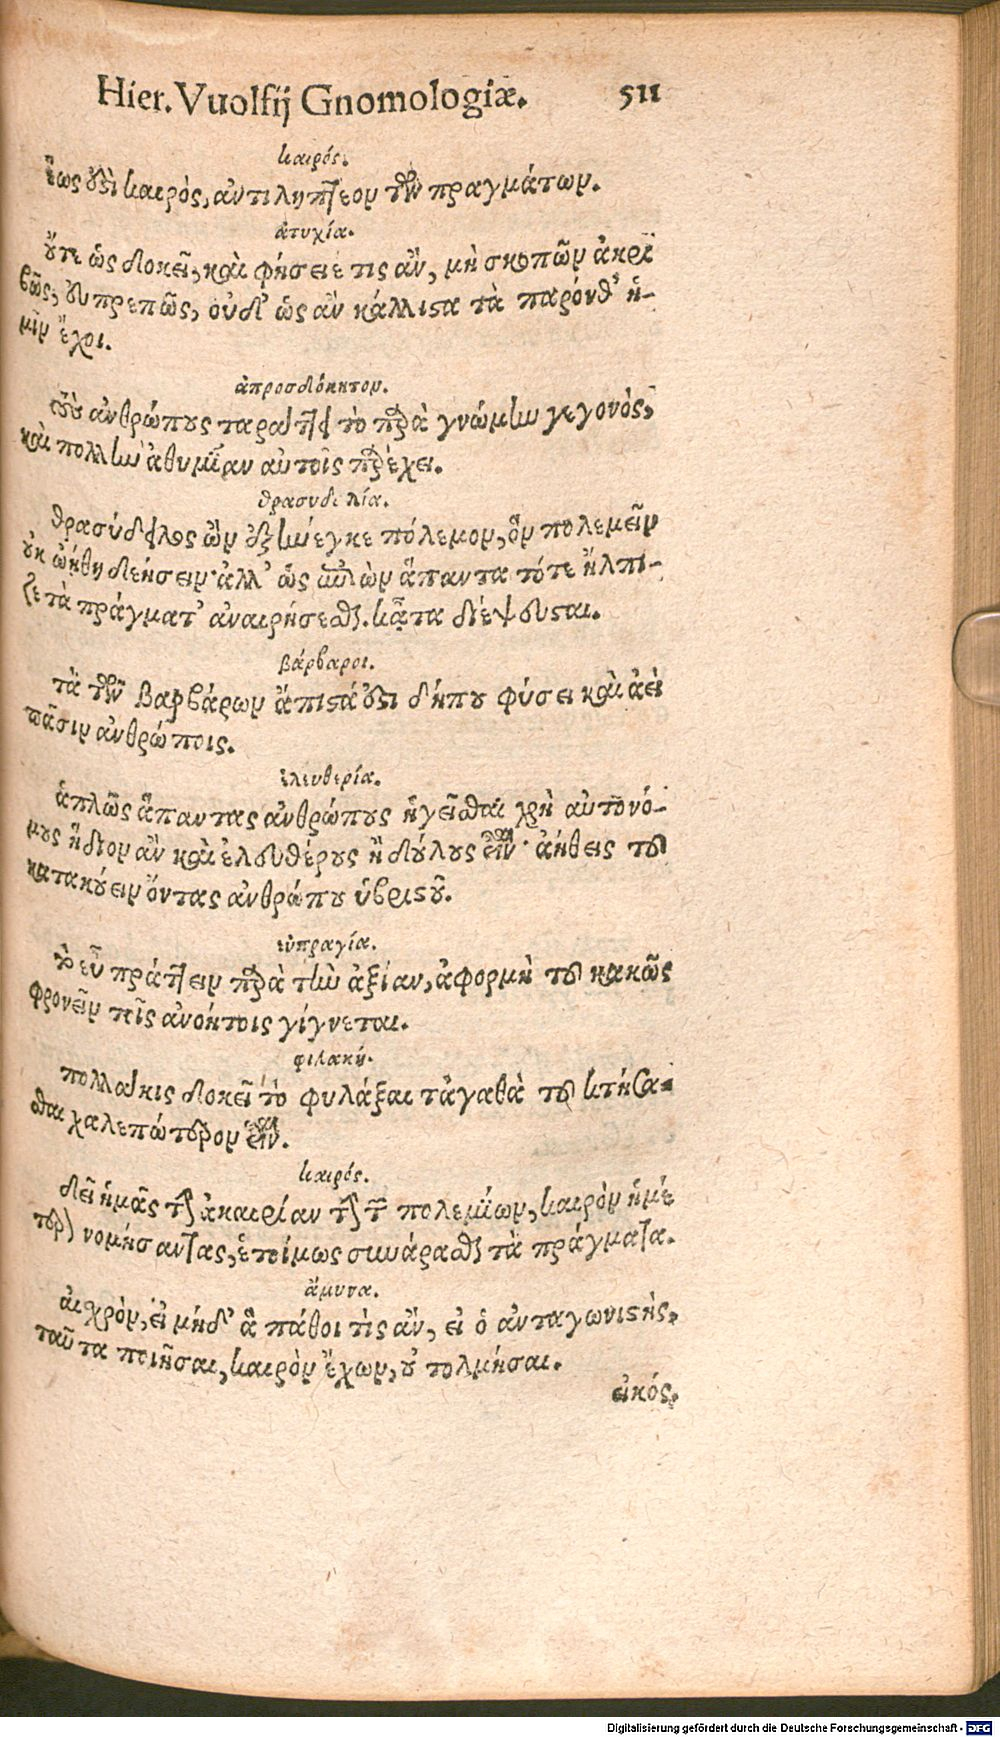 Hier. Vuolfij Gnomologiæ. 511
καιρός.
ἕως ἐστὶ καιρός, ἀντιληπτέον τῶν πραγμάτων.
ἀτυχία.
οὔτε ὡς δοκεῖ, καὶ φήσειέ τις ἂν, μὴ σκοπῶν ἀκρι
βῶς, εὐπρεπῶς, οὐδ' ὡς ἂν κάλλιστα τὰ παρόνθ' ἡ-
μῖν ἔχοι.
ἀπροσδόκητον.
τοὺς ἀνθρώπους ταράττει τὸ παρὰ γνώμην γεγονός,
καὶ πολλὴν ἀθυμίαν αὐτοῖς παρέχει.
θρασυδειλία.
θρασύδειλος ὢν ἐξήνεγκε πόλεμον, ὃν πολεμεῖν
οὐκ ᾠήθη δεήσειν· ἀλλ' ὡς ἐπιὼν ἅπαντα τότε ἤλπι-
ζε τὰ πράγματ' ἀναιρήσεσθαι. κᾆτα διέψευσται.
βάρβαροι.
τὰ τῶν βαρβάρων ἄπιστά ἐστι δήπου φύσει καὶ ἀεὶ
πᾶσιν ἀνθρώποις.
ἐλευθερία.
ἁπλῶς ἅπαντας ἀνθρώπους ἡγεῖσθαι χρὴ αὐτονό-
μους ἥδιον ἂν καὶ ἐλευθέρους ἢ δούλους εἶναι· ἀήθεις τοῦ
κατακούειν ὄντας ἀνθρώπου ὑβριστοῦ.
εὐπραγία.
τὸ εὖ πράττειν παρὰ τὴν ἀξίαν, ἀφορμὴ τοῦ κακῶς
φρονεῖν τοῖς ἀνοήτοις γίγνεται.
φιλακή.
πολλάκις δοκεῖ τὸ φυλάξαι τἀγαθὰ τοῦ κτήσα-
σθαι χαλεπώτερον εἶναι.
καιρός.
δεῖ ἡμᾶς τὴν ἀκαιρίαν τὴν τῶν πολεμίων, καιρὸν ἡμέ
τερον νομήσαντας, ἑτοίμως συνάρασθαι τὰ πράγματα.
ἄμυνα.
αἰχρὸν, εἰ μήδ' ἃ πάθοι τὶς ἂν, εἰ ὁ ἀνταγωνιστὴς,
ταῦτα ποιῆσαι, καιρὸν ἔχων, οὐ τολμήσαι.
εἰκός.
Digitalisierung gefördert durch die Deutsche Forschungsgemeinschaft - DFG